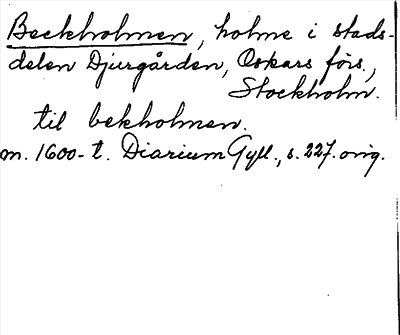 Beckholmen, holme i stads-
delen Djurgården, Oskars förs.,
Stockholm.
til bekholmen.
m. 1600-t. Diarium Gyll., s. 227. orig.